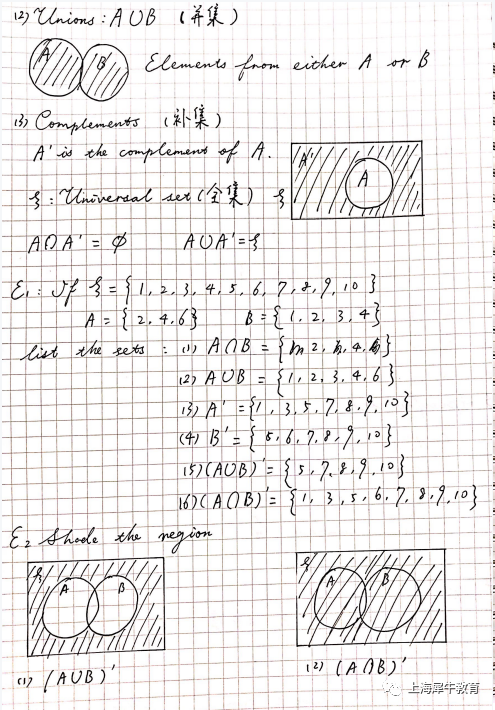 (2) Unions : A∪B (并集)
A B Elements from either A or B
(3) Complements (补集)
A' is the complement of A.
A' A
ξ : Universal set (全集) ξ
A∩A' = ϕ A∪A' = ξ
E1 : If ξ = { 1, 2, 3, 4, 5, 6, 7, 8, 9, 10 }
A = { 2, 4, 6 } B = { 1, 2, 3, 4 }
list the sets : (1) A∩B = { 2, 4, }
(2) A∪B = { 1, 2, 3, 4, 6 }
(3) A' = { 1, 3, 5, 7, 8, 9, 10 }
(4) B' = { 5, 6, 7, 8, 9, 10 }
(5) (A∪B)' = { 5, 7, 8, 9, 10 }
(6) (A∩B)' = { 1, 3, 5, 6, 7, 8, 9, 10 }
E2 Shade the region
ξ A B ξ A B
(1) (A∪B)' (2) (A∩B)'
上海犀牛教育